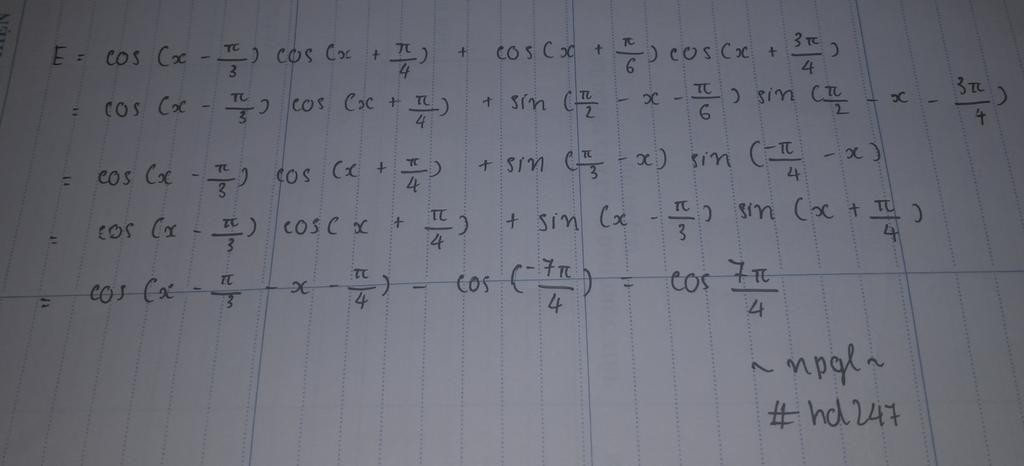 E = cos (x - π/3) cos (x + π/4) + cos (x + π/6) cos (x + 3π/4)
= cos (x - π/3) cos (x + π/4) + sin (π/2 - x - π/6) sin (π/2 - x - 3π/4)
= cos (x - π/3) cos (x + π/4) + sin (π/3 - x) sin (-π/4 - x)
= cos (x - π/3) cos ( x + π/4) + sin (x - π/3) sin (x + π/4)
= cos (x - π/3 - x - π/4) - cos (-7π/4) = cos 7π/4
~ npgl ~
# hd247